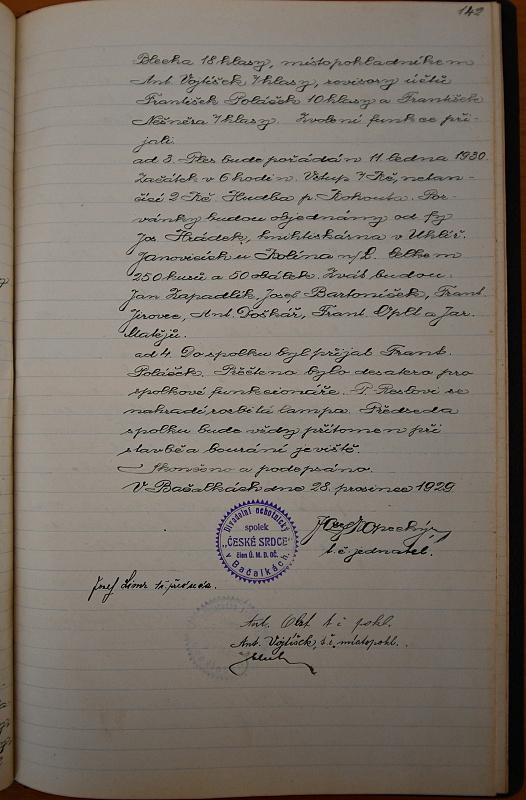 142
Blecha 18 hlasy, místopokladníkem
Ant. Vojtíšek 7 hlasy, revisory účtů
František Poláček 10 hlasy a František
7 hlasy. Zvolení funkce při-
jali.
ad 3. Ples bude pořádán 11 ledna 1930.
Začátek v 6 hodin. Vstup 7 Kč, netan-
čící 2 Kč. Hudba p. Kohouta. Poz-
vánky budou objednány od fy
Jos. Hrádek, knihtiskárna v Uhlíř.
Janovicích u Kolína n/L. Celkem
250 kusů a 50 obálek. Zváti budou:
Jan Zapadlík, Josef Bartoníček, Frant.
Jirovec, Ant. Doškář, Frant. Oplt a Jar.
Matějů.
ad 4. Do spolku byl přijat Frant.
Poláček. Přečteno bylo desatero pro
spolkové funkcionáře. P. Reslovi se
nahradí rozbitá lampa. Předseda
spolku bude vždy přítomen při
stavbě a bourání jeviště.
Skončeno a podepsáno.
V Bačalkách dne 28. prosince 1929.
Divadelní ochotnický
spolek
„ČESKÉ SRDCE“
člen Ú. M. D. OČ.
v Bačalkách.
Josef Kopecký
t. č. jednatel.
Josef
Ant. t. č. pokl.
Ant. Vojtíšek, t. č. místopokl.